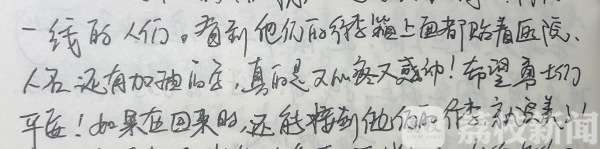 一线的人们。看到他们的行李箱上面都贴着医院、
人名还有加油的字,真的是又心疼又感动!希望勇士们
平安!如果在回来时,还能接到他们的行李就完美了!
荔枝新闻